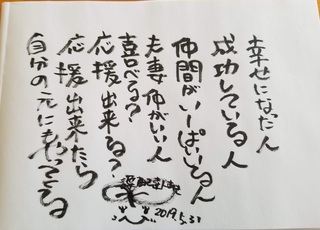 幸せになった人
成功している人
仲間がいーぱいいる人
夫妻仲がいい人
喜べる？
応援出来る？
応援出来たら
自分の元にもやってくる
2019.5.31